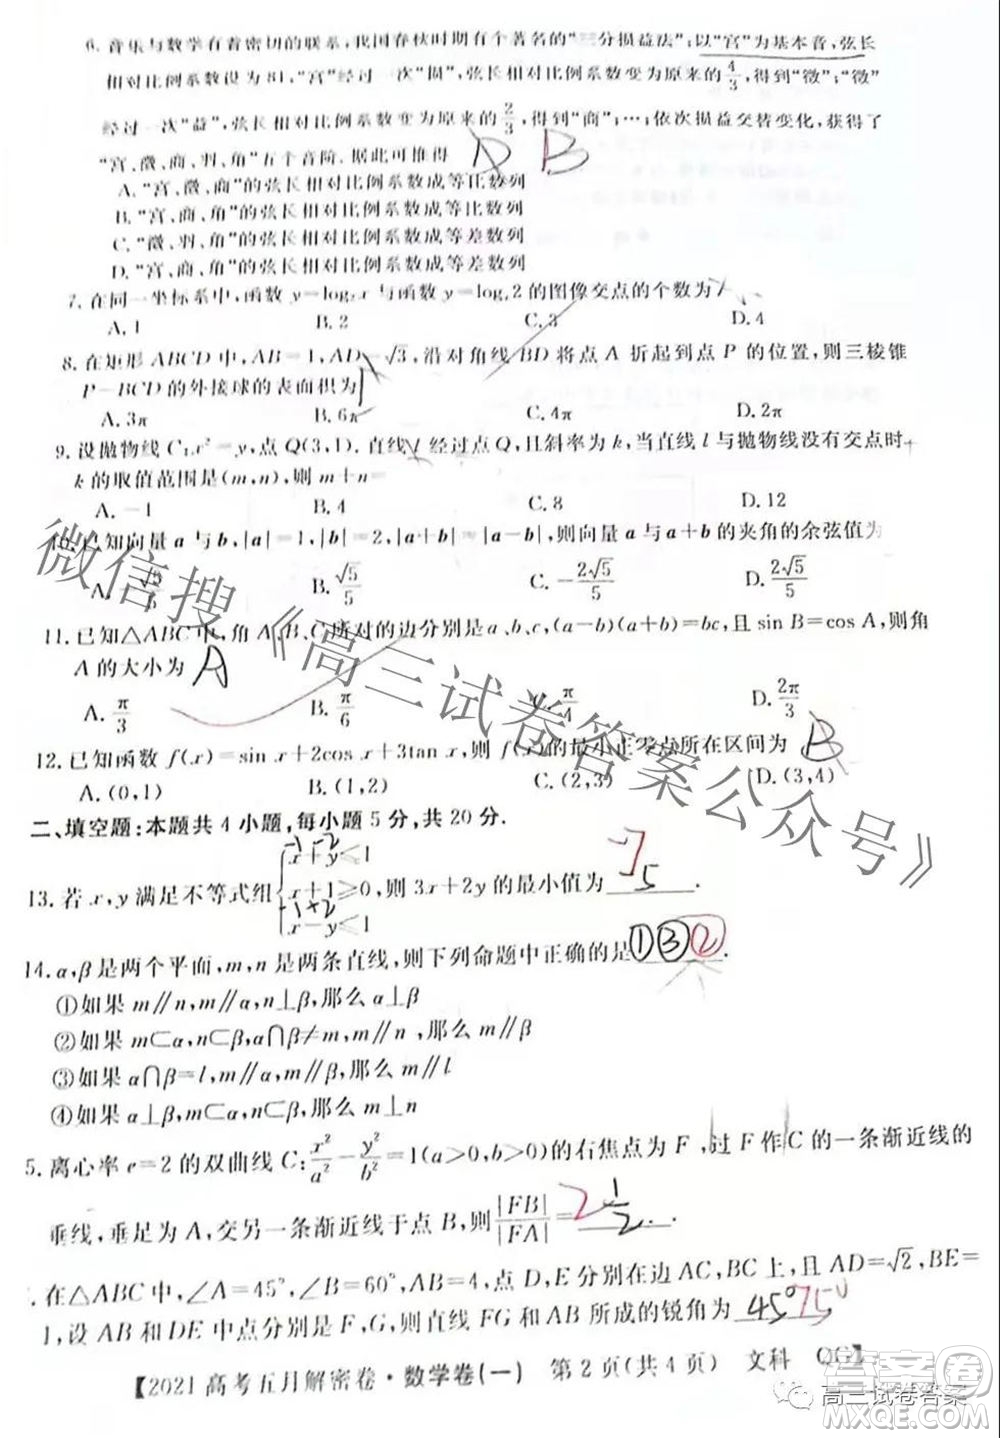 6. 音乐与数学有着密切的联系,我国春秋时期有个著名的“三分损益法”:以“宫”为基本音,弦长
相对比例系数设为81,“宫”经过一次“损”,弦长相对比例系数变为原来的4/3,得到“徵”;“徵”
经过一次“益”,弦长相对比例系数变成原来的2/3,得到“商”;…;依次损益交替变化,获得了
“宫、徵、商、羽、角”五个音阶.据此可推得 D B
A. “宫、徵、商”的弦长相对比例系数成等比数列
B. “宫、商、角”的弦长相对比例系数成等比数列
C. “徵、羽、角”的弦长相对比例系数成等差数列
D. “宫、商、角”的弦长相对比例系数成等差数列
7. 在同一坐标系中,函数 y=log₂x 与函数 y=logₓ2 的图像交点的个数为
A. 1 B. 2 C. 3 D. 4
8. 在矩形 ABCD 中,AB=1,AD=√3,沿对角线 BD 将点 A 折起到点 P 的位置,则三棱锥
P-BCD 的外接球的表面积为
A. 3π B. 6π C. 4π D. 2π
9. 设抛物线 C:x²=y,点 Q(3,1).直线 l 经过点 Q,且斜率为 k,当直线 l 与抛物线没有交点时,
k 的取值范围是(m,n),则 m+n=
A. -1 B. 4 C. 8 D. 12
10. 已知向量 a 与 b,|a|=1,|b|=2,|a+b|=|a-b|,则向量 a 与 a+b 的夹角的余弦值为
A. -√5/5 B. √5/5 C. -2√5/5 D. 2√5/5
11. 已知△ABC 中,角 A、B、C 所对的边分别是 a、b、c,(a-b)(a+b)=bc,且 sin B=cos A,则角
A 的大小为 A
A. π/3 B. π/6 C. π/4 D. 2π/3
12. 已知函数 f(x)=sin x+2cos x+3tan x,则 f(x)的最小正零点所在区间为 B
A. (0,1) B. (1,2) C. (2,3) D. (3,4)
二、填空题:本题共 4 小题,每小题 5 分,共 20 分.
13. 若 x,y 满足不等式组{x+y≤1 x+1≥0 x-y≤1,则 3x+2y 的最小值为 -7 5.
14. α,β 是两个平面,m,n 是两条直线,则下列命题中正确的是 ①③②.
①如果 m∥n,m∥α,n⊥β,那么 α⊥β
②如果 m⊂α,n⊂β,α∩β≠m,m∥n ,那么 m∥β
③如果 α∩β=l,m∥α,m∥β,那么 m∥l
④如果 α⊥β,m⊂α,n⊂β,那么 m⊥n
5. 离心率 e=2 的双曲线 C:x²/a²-y²/b²=1(a>0,b>0)的右焦点为 F,过 F 作 C 的一条渐近线的
垂线,垂足为 A,交另一条渐近线于点 B,则|FB|/|FA|= 2 1/2.
. 在△ABC 中,∠A=45°,∠B=60°,AB=4,点 D,E 分别在边 AC,BC 上,且 AD=√2,BE=
1,设 AB 和 DE 中点分别是 F,G,则直线 FG 和 AB 所成的锐角为 45° 75°
【2021 高考五月解密卷·数学卷(一) 第 2 页(共 4 页) 文科 QG】
微信搜《高三试卷答案公众号》
高三试卷答案
答案圈
MXQE.COM